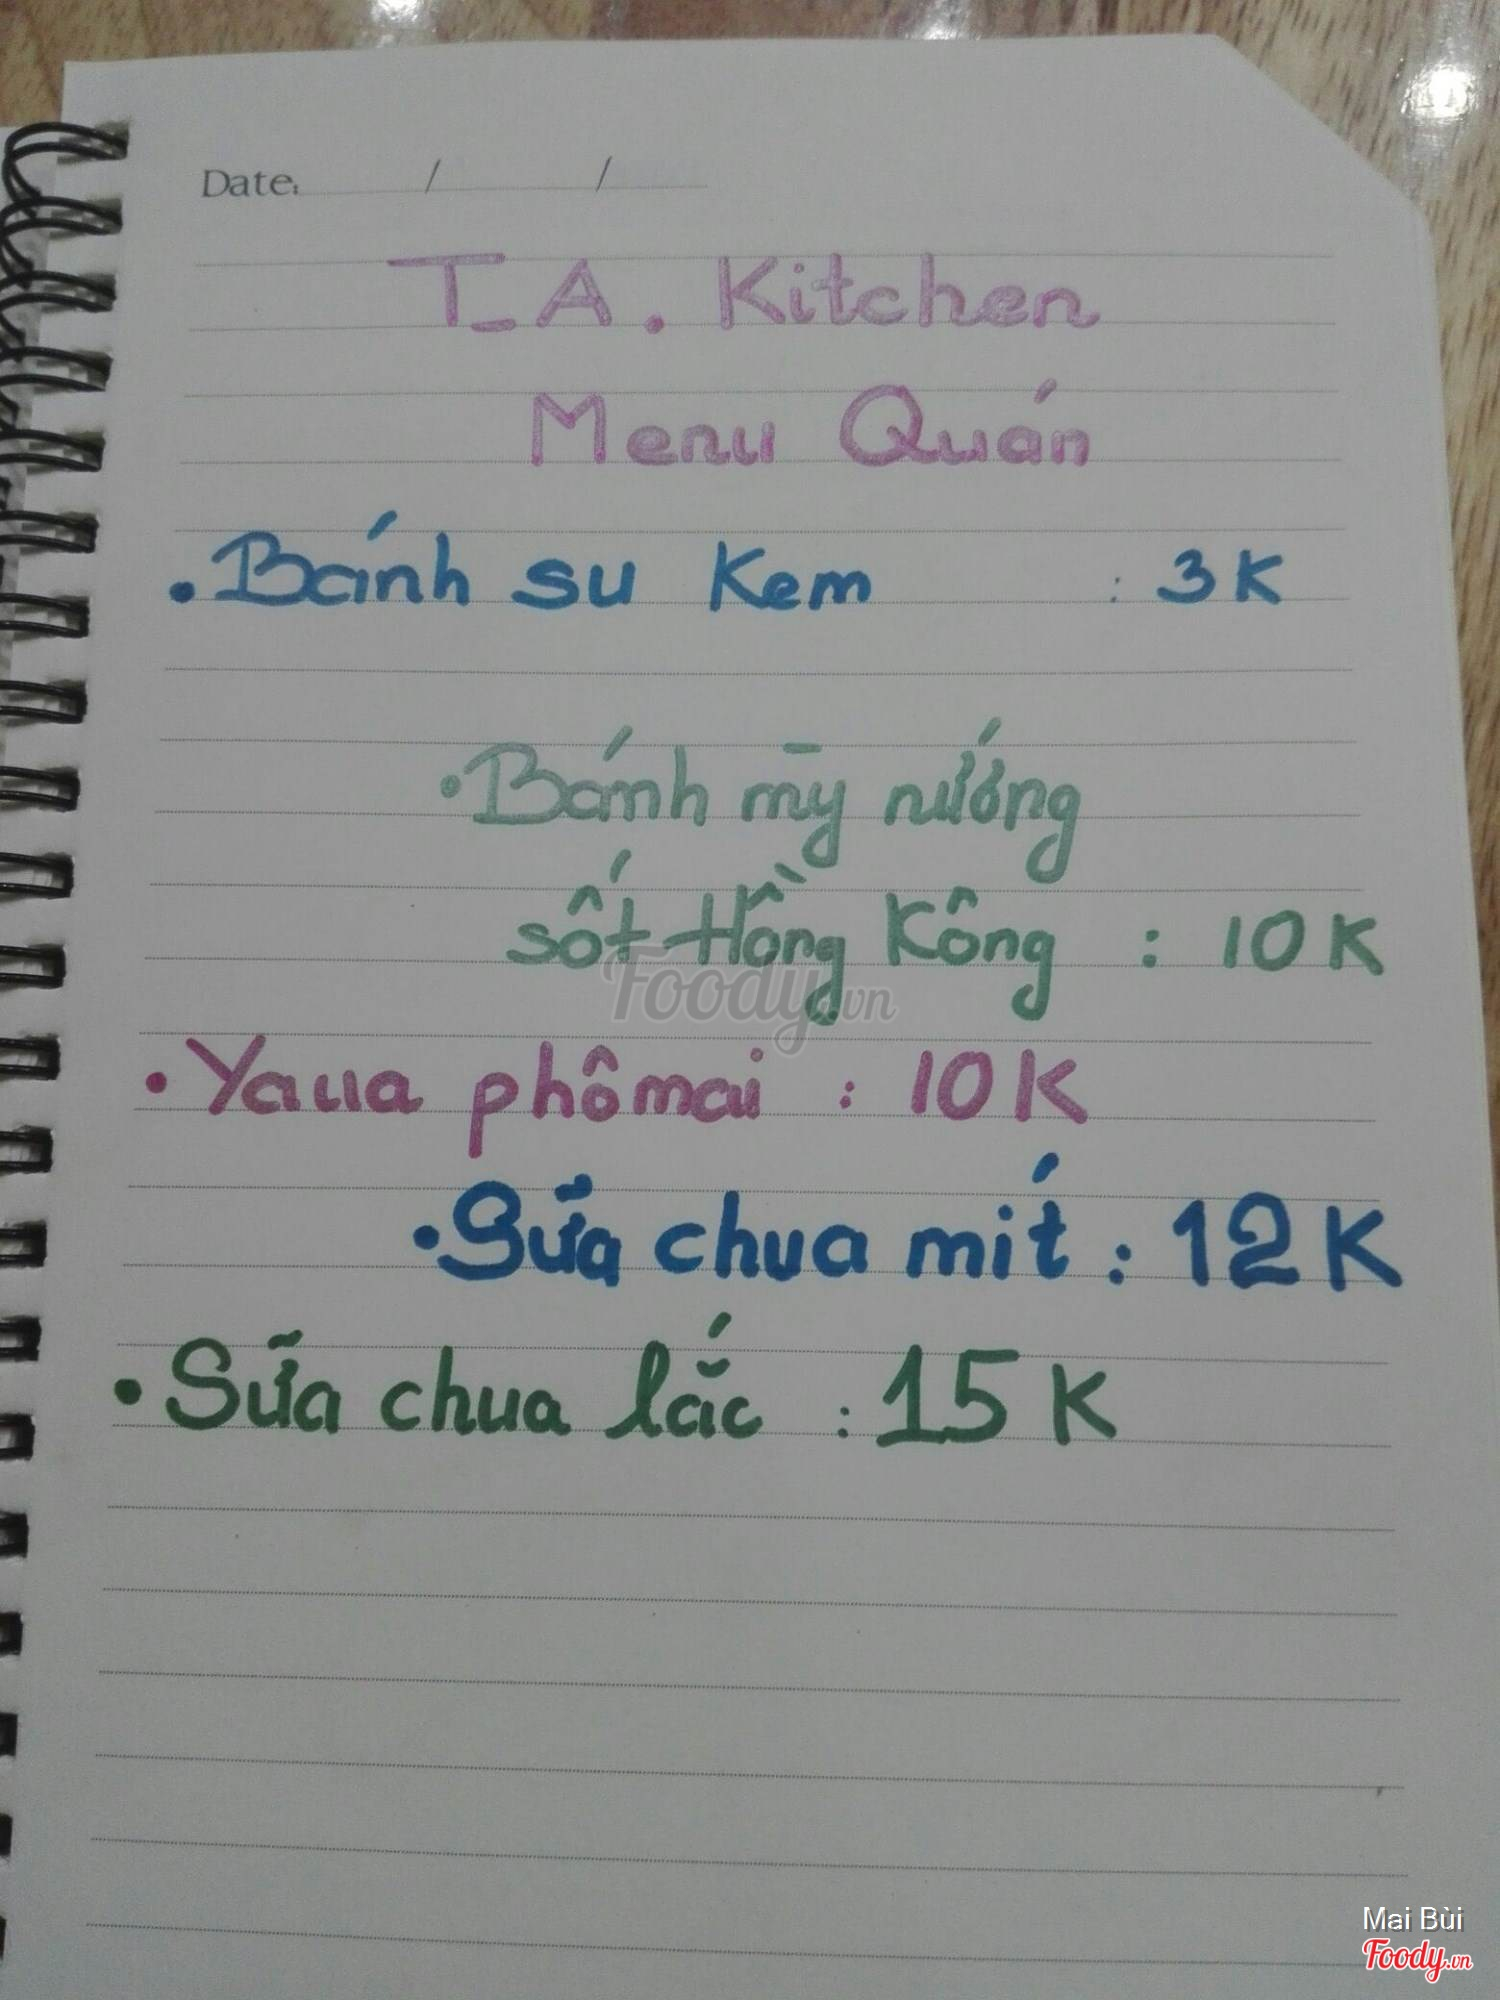 Date: / /
T_A. Kitchen
Menu Quán
• Bánh su Kem : 3K
• Bánh mỳ nướng
sốt Hồng Kông : 10K
Foody.vn
• Yaua phômai : 10K
• Sữa chua mít : 12K
• Sữa chua lắc : 15K
Mai Bùi
Foody.vn